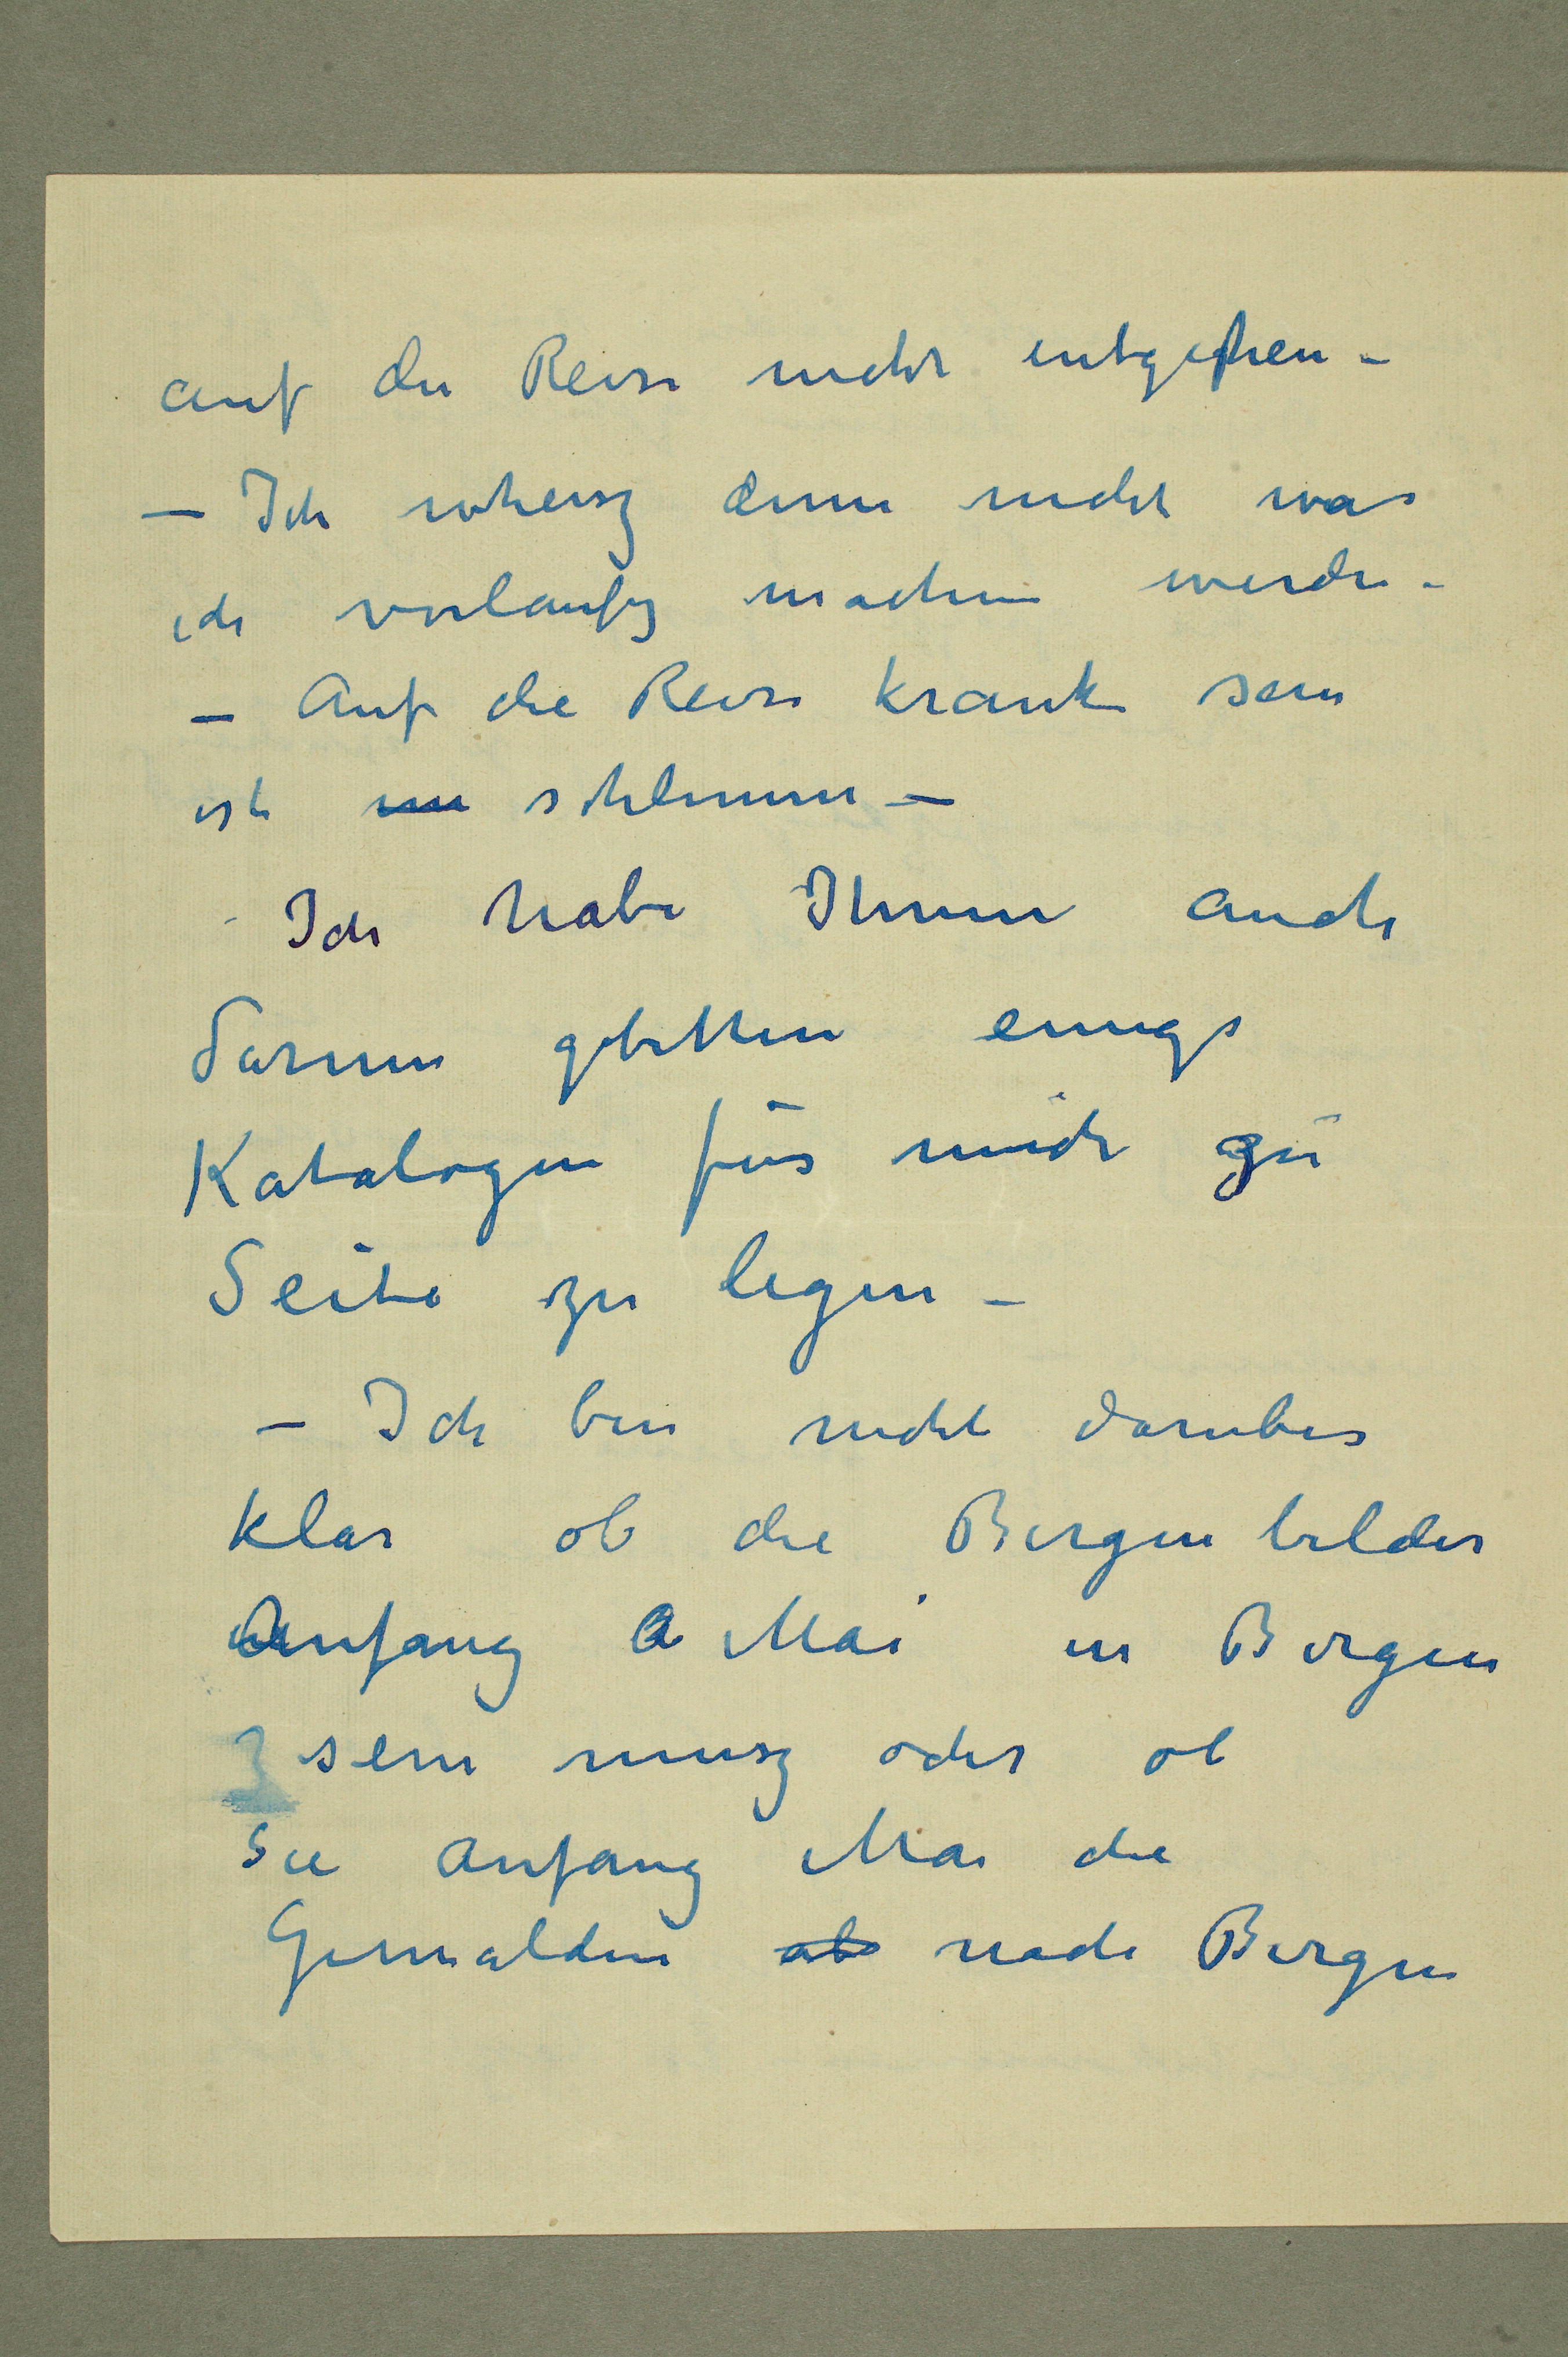 auf die Reise nicht entgehen –
– Ich wheisz denn nicht was
ich vorlaufig machen werde –
– Auf die Reise krank sein
ist schlimm –
– Ich habe Ihnen auch
darum gebitten einige
Katalogen für mich zu
Seite zu legen –
– Ich bin nicht daruber
klar ob die Bergenbilder
Anfang Mai in Bergen
sein musz oder ob
sie anfang Mai die
Gemälden ab nach Bergen